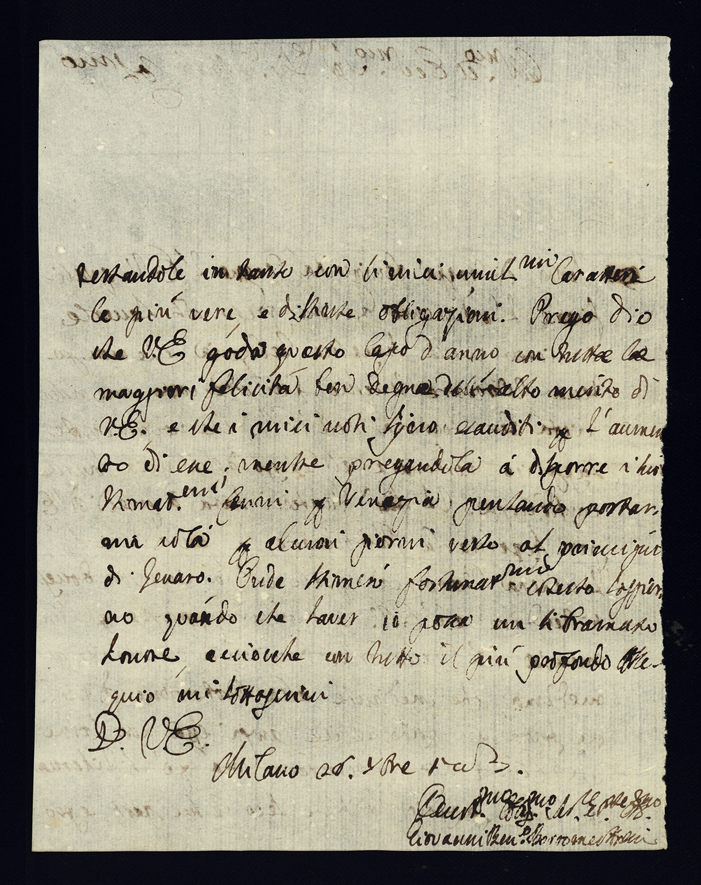 restandole in tanto con li miei umil.mi Caratteri
le più vere, e distinte obligazioni. Prego Dio
che V.E. goda questo Capo d'anno con tutte le
maggiori felicità ben degne dell'alto merito di
V.E. e che i miei voti sijno esauditi p l'aumen
to di ene, mentre pregandola á disporre i suoi
stimat.mi Cenni p Venezia pensando portar-
mi colà p alcuni giorni verso al principio
di Genaro. Onde stimerò fortunat.mo questo
no quando che haver io possa un sì bramato
honore acciocche con tutto il più profondo osse-
quio mi sottoscrivi
D. V.E.
Milano 26. Xbre
Giovanni Ben.o Borromeo Aresi